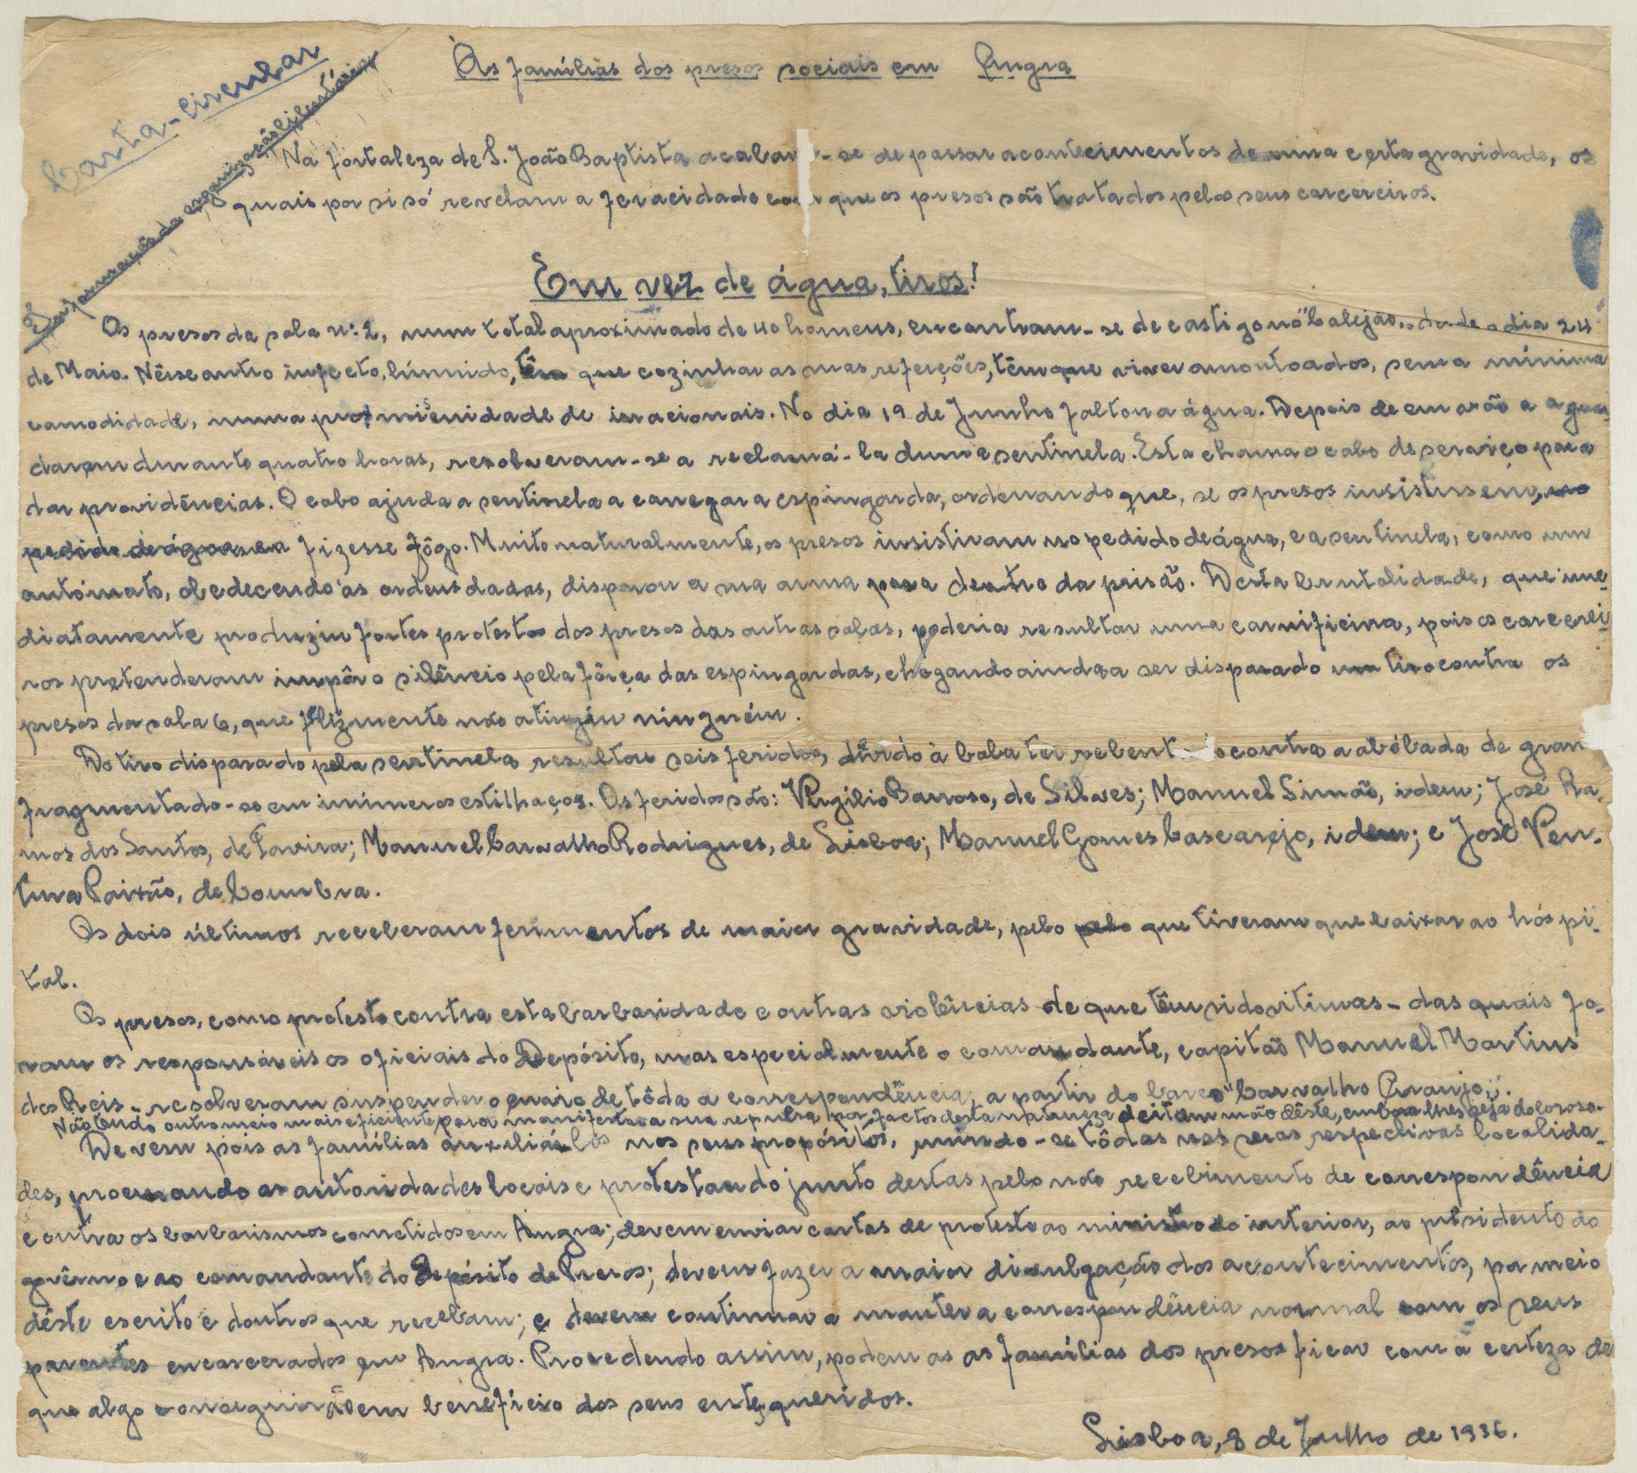 Carta-circular
Às famílias dos presos sociais em Angra
Na fortaleza de S. João Baptista acabam-se de passar acontecimentos de uma certa gravidade, os
quais por si só revelam a feracidade com que os presos são tratados pelos seus carcereiros.
Em vez de água, tiros!
Os presos da sala nº 2, num total aproximado de 40 homens, encontram-se de castigo no "calejão", desde o dia 24
de Maio. Nêsse antro infecto, húmido, têm que cozinhar as suas refeições, têm que viver amontoados, sem a mínima
comodidade, numa promiscuidade de iracionais. No dia 19 de Junho faltou a água. Depois de em vão a aguar-
darem durante quatro horas, resolveram-se a reclamá-la duma sentinela. Esta chama o cabo de serviço para
dar providências. O cabo ajuda a sentinela a carregar a espingarda, ordenando que, se os presos insistissem, no
pedido de água, fizesse fôgo. Muito naturalmente, os presos insistiram no pedido de água, e a sentinela, como um
autómato, obedecendo às ordens dadas, disparou a sua arma para dentro da prisão. Desta brutalidade, que ime-
diatamente produziu fortes protestos dos presos das outras salas, poderia resultar uma carnificina, pois os carcerei-
ros pretenderam impôr o silêncio pela fôrça das espingardas, chegando ainda a ser disparado um tiro contra os
presos da sala 6, que felizmente não atingiu ninguém.
Do tiro disparado pela sentinela resultou seis feridos, devido à bala ter rebent o contra a abóbada de gran
fragmentado-se em inúmeros estilhaços. Os feridos são: Virgílio Barroso, de Silves; Manuel Simão, idem; José Ra-
mos dos Santos, de Tavira; Manuel Carvalho Rodrigues, de Lisboa; Manuel Gomes Cascarejo, idem; e José Ven-
tura Paixão, de Coimbra.
Os dois últimos receberam ferimentos de maior gravidade, pelo pelo que tiveram que baixar ao hóspi-
tal.
Os presos, como protesto contra esta barbaridade e outras violências de que têm sido vítimas - das quais fo-
ram os responsáveis os oficiais do Depósito, mas especialmente o comandante, capitão Manuel Martins
dos Reis - resolveram suspender o envio de tôda a correspondência, a partir do barco "Carvalho Araujo".
Não tendo outro meio mais eficiente para manifestar a sua repulsa por factos desta natureza deitam mão dêste, embora lhes seja doloroso.
Devem pois as famílias auxiliá-los nos seus propósitos, unindo-se tôdas nas suas respectivas localida-
des, procurando as autoridades locais e protestando junto destas pelo não recebimento de correspondência
e contra os barbarismos cometidos em Angra; devem enviar cartas de protesto ao ministro do interior, ao presidente do
govêrno e ao comandante do Depósito de Presos; devem fazer a maior divulgação dos acontecimentos, por meio
dêste escrito e doutros que recebam; e devem continuar a manter a correspondência normal com os seus
parentes encarcerados em Angra. Procedendo assim, podem as as famílias dos presos ficar com a certeza de
que algo conseguirão em benefício dos seus entes queridos.
Lisboa, 8 de Julho de 1936.